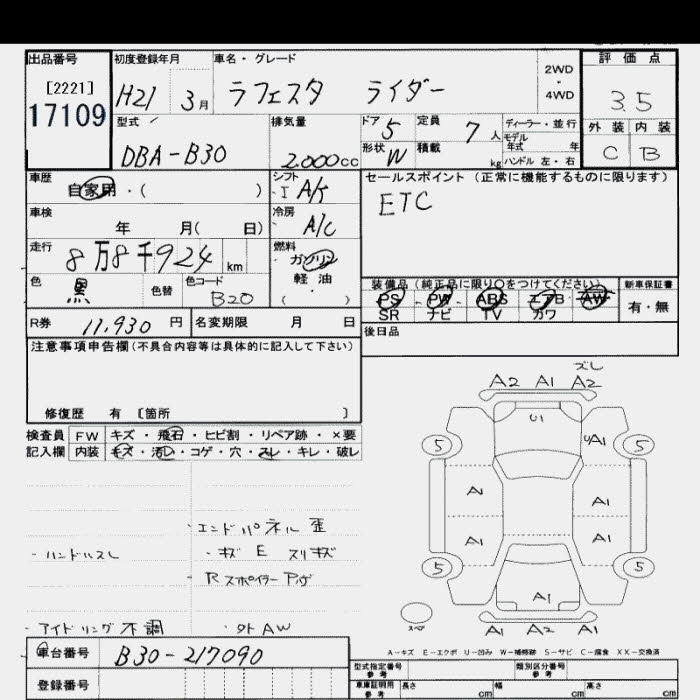 出品番号 初度登録年月 車名・グレード 評価点
[2221] 2WD ・ 4WD
17109 H21 3月 ラフェスタ ライダー 3.5
型式 排気量 ドア 5 定員 7人 ディーラー・並行 外装 内装
モデル年式 年
DBA-B30 2,000cc 形状 W 積載 kg ハンドル 左・右 C B
車歴 シフト セールスポイント (正常に機能するものに限ります)
自家用・( ) I A/t ETC
車検 冷房
年 月( 日) A/C
走行 燃料
8万8千924 km ガソリン
色 色替 色コード 軽油 装備品 (純正品に限り○をつけてください) 新車保証書
黒 B20 ( ) PS・PW・ABS・エアB・AW 有・無
SR ナビ TV カワ
R券 11,930 円 名変期限 月 日 後日品
注意事項申告欄 (不具合内容等は具体的に記入して下さい)
修復歴 有 [箇所 ]
検査員 FW キズ・飛石・ヒビ割・リペア跡・×要
記入欄 内装 キズ・汚レ・コゲ・穴・スレ・キレ・破レ
ズレ
A2 A1 A2
U1
5 UA1 5
A A1
A1 A1
5 5
A1
スペア A1 A1 A2
・エンドパネル歪
・ハンドルスレ ・キズ E スリキズ
・Rスポイラー
・アイドリング不調 ・外AW
A-キズ E-エクボ U-凹み W-補修跡 S-サビ C-腐食 XX-交換済
車台番号 B30-217090
型式指定番号 参考 類別区分番号 参考
登録番号 車庫証明用 参考 長さ cm 幅 cm 高さ cm